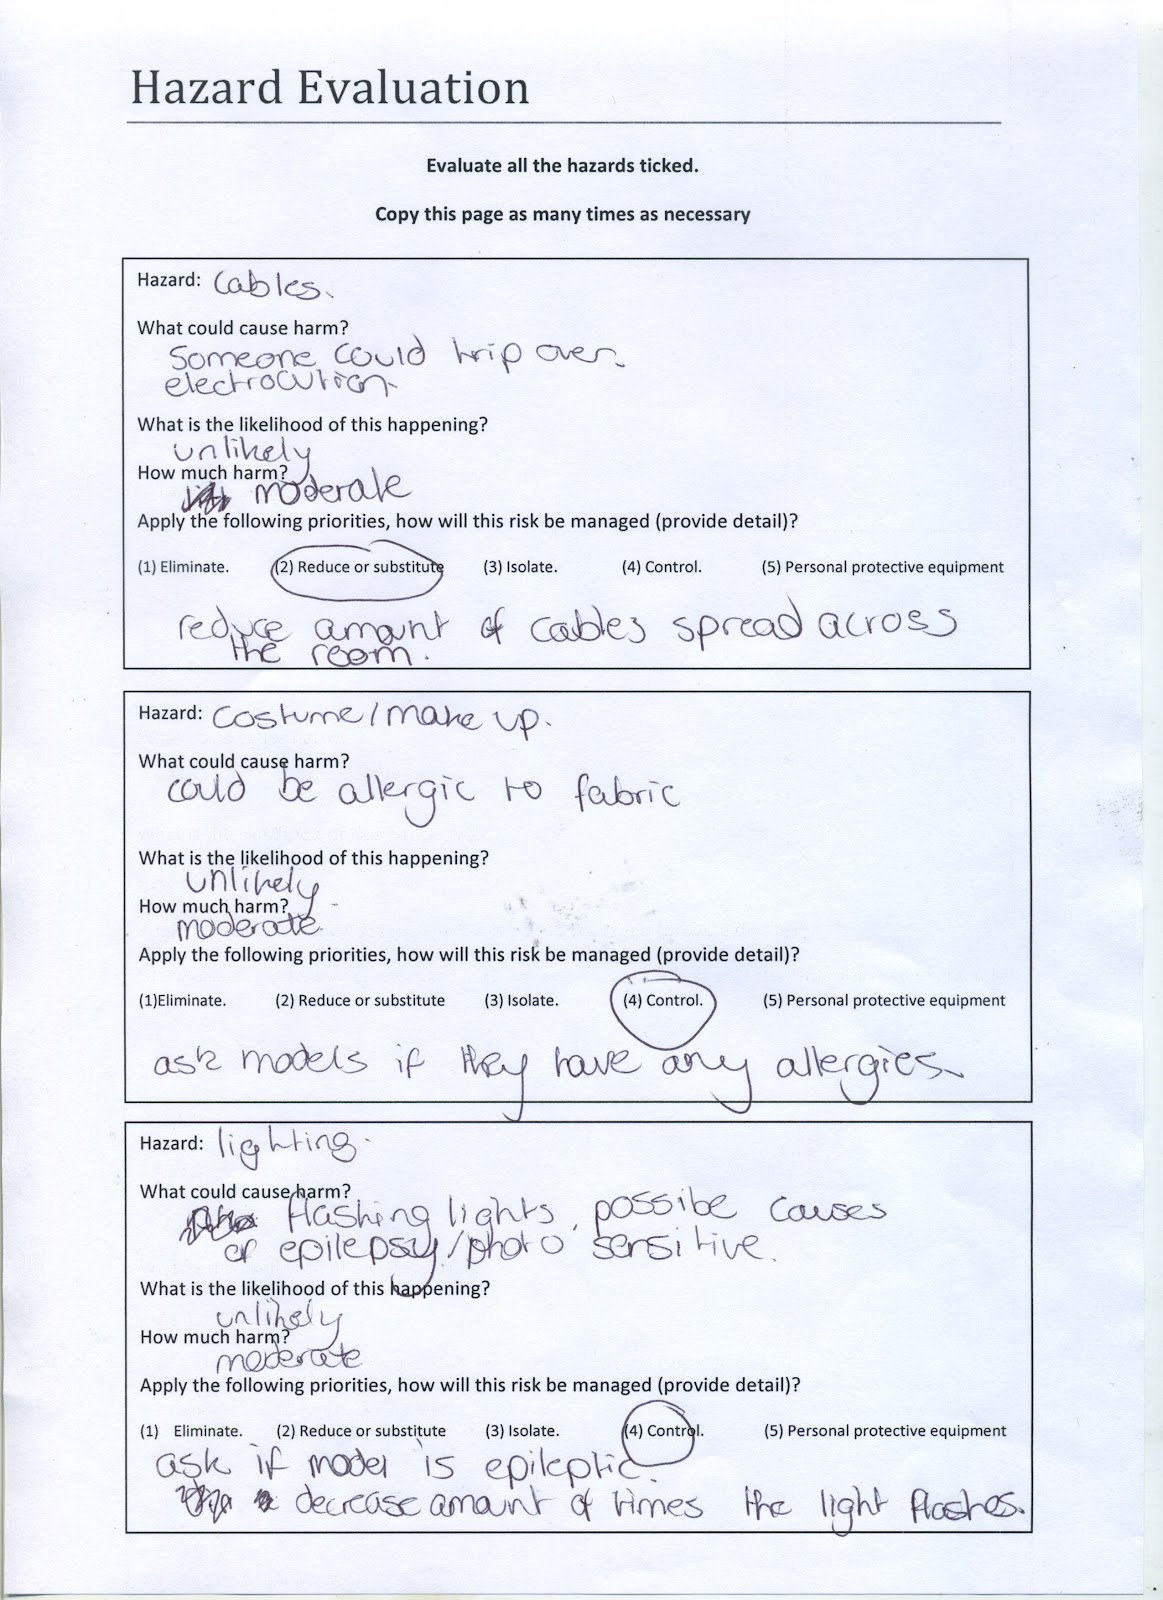 Hazard Evaluation
Evaluate all the hazards ticked.
Copy this page as many times as necessary
Hazard: Cables.
What could cause harm?
Someone could trip over.
electrocution.
What is the likelihood of this happening?
unlikely
How much harm?
moderate
Apply the following priorities, how will this risk be managed (provide detail)?
(1) Eliminate. (2) Reduce or substitute (3) Isolate. (4) Control. (5) Personal protective equipment
reduce amount of cables spread across
the room.
Hazard: Costume/make up.
What could cause harm?
could be allergic to fabric
What is the likelihood of this happening?
unlikely
How much harm?
moderate.
Apply the following priorities, how will this risk be managed (provide detail)?
(1)Eliminate. (2) Reduce or substitute (3) Isolate. (4) Control. (5) Personal protective equipment
ask models if they have any allergies.
Hazard: lighting.
What could cause harm?
flashing lights, possibe causes
of epilepsy/photo sensitive.
What is the likelihood of this happening?
unlikely
How much harm?
moderate
Apply the following priorities, how will this risk be managed (provide detail)?
(1) Eliminate. (2) Reduce or substitute (3) Isolate. (4) Control. (5) Personal protective equipment
ask if model is epileptic.
decrease amount of times the light flashes.